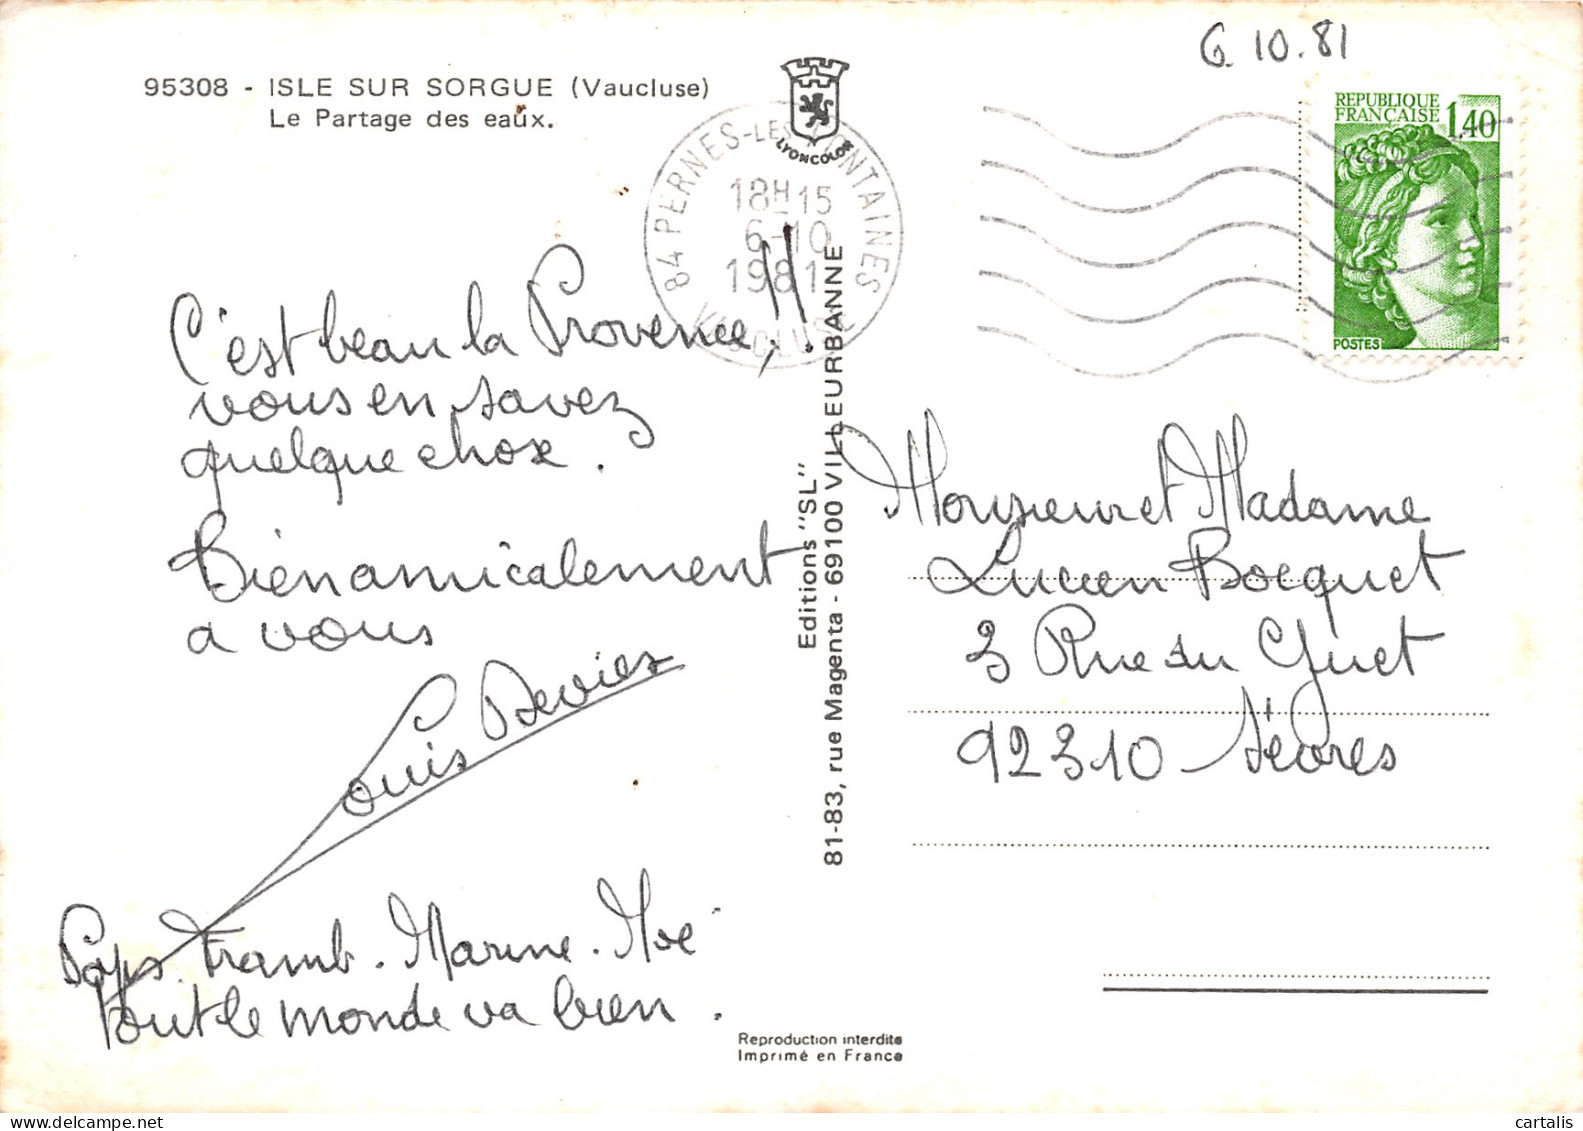 6.10.81
95308 - ISLE SUR SORGUE (Vaucluse)
Le Partage des eaux.
LYONCOLOR
84 PERNES-LES-FONTAINES
18H15
6-10
1981
VAUCLUSE
REPUBLIQUE
FRANÇAISE
1,40
POSTES
C'est beau la Provence,!!
vous en savez
quelque chose.
Bien amicalement
a vous
Louis Devies
Tramb. Marine. Noé
tout le monde va bien.
Editions "SL"
81-83, rue Magenta - 69100 VILLEURBANNE
Monsieur et Madame
Lucien Bocquet
3 Rue du Guet
92310 Sèvres
Reproduction interdite
Imprimé en France
cartalis